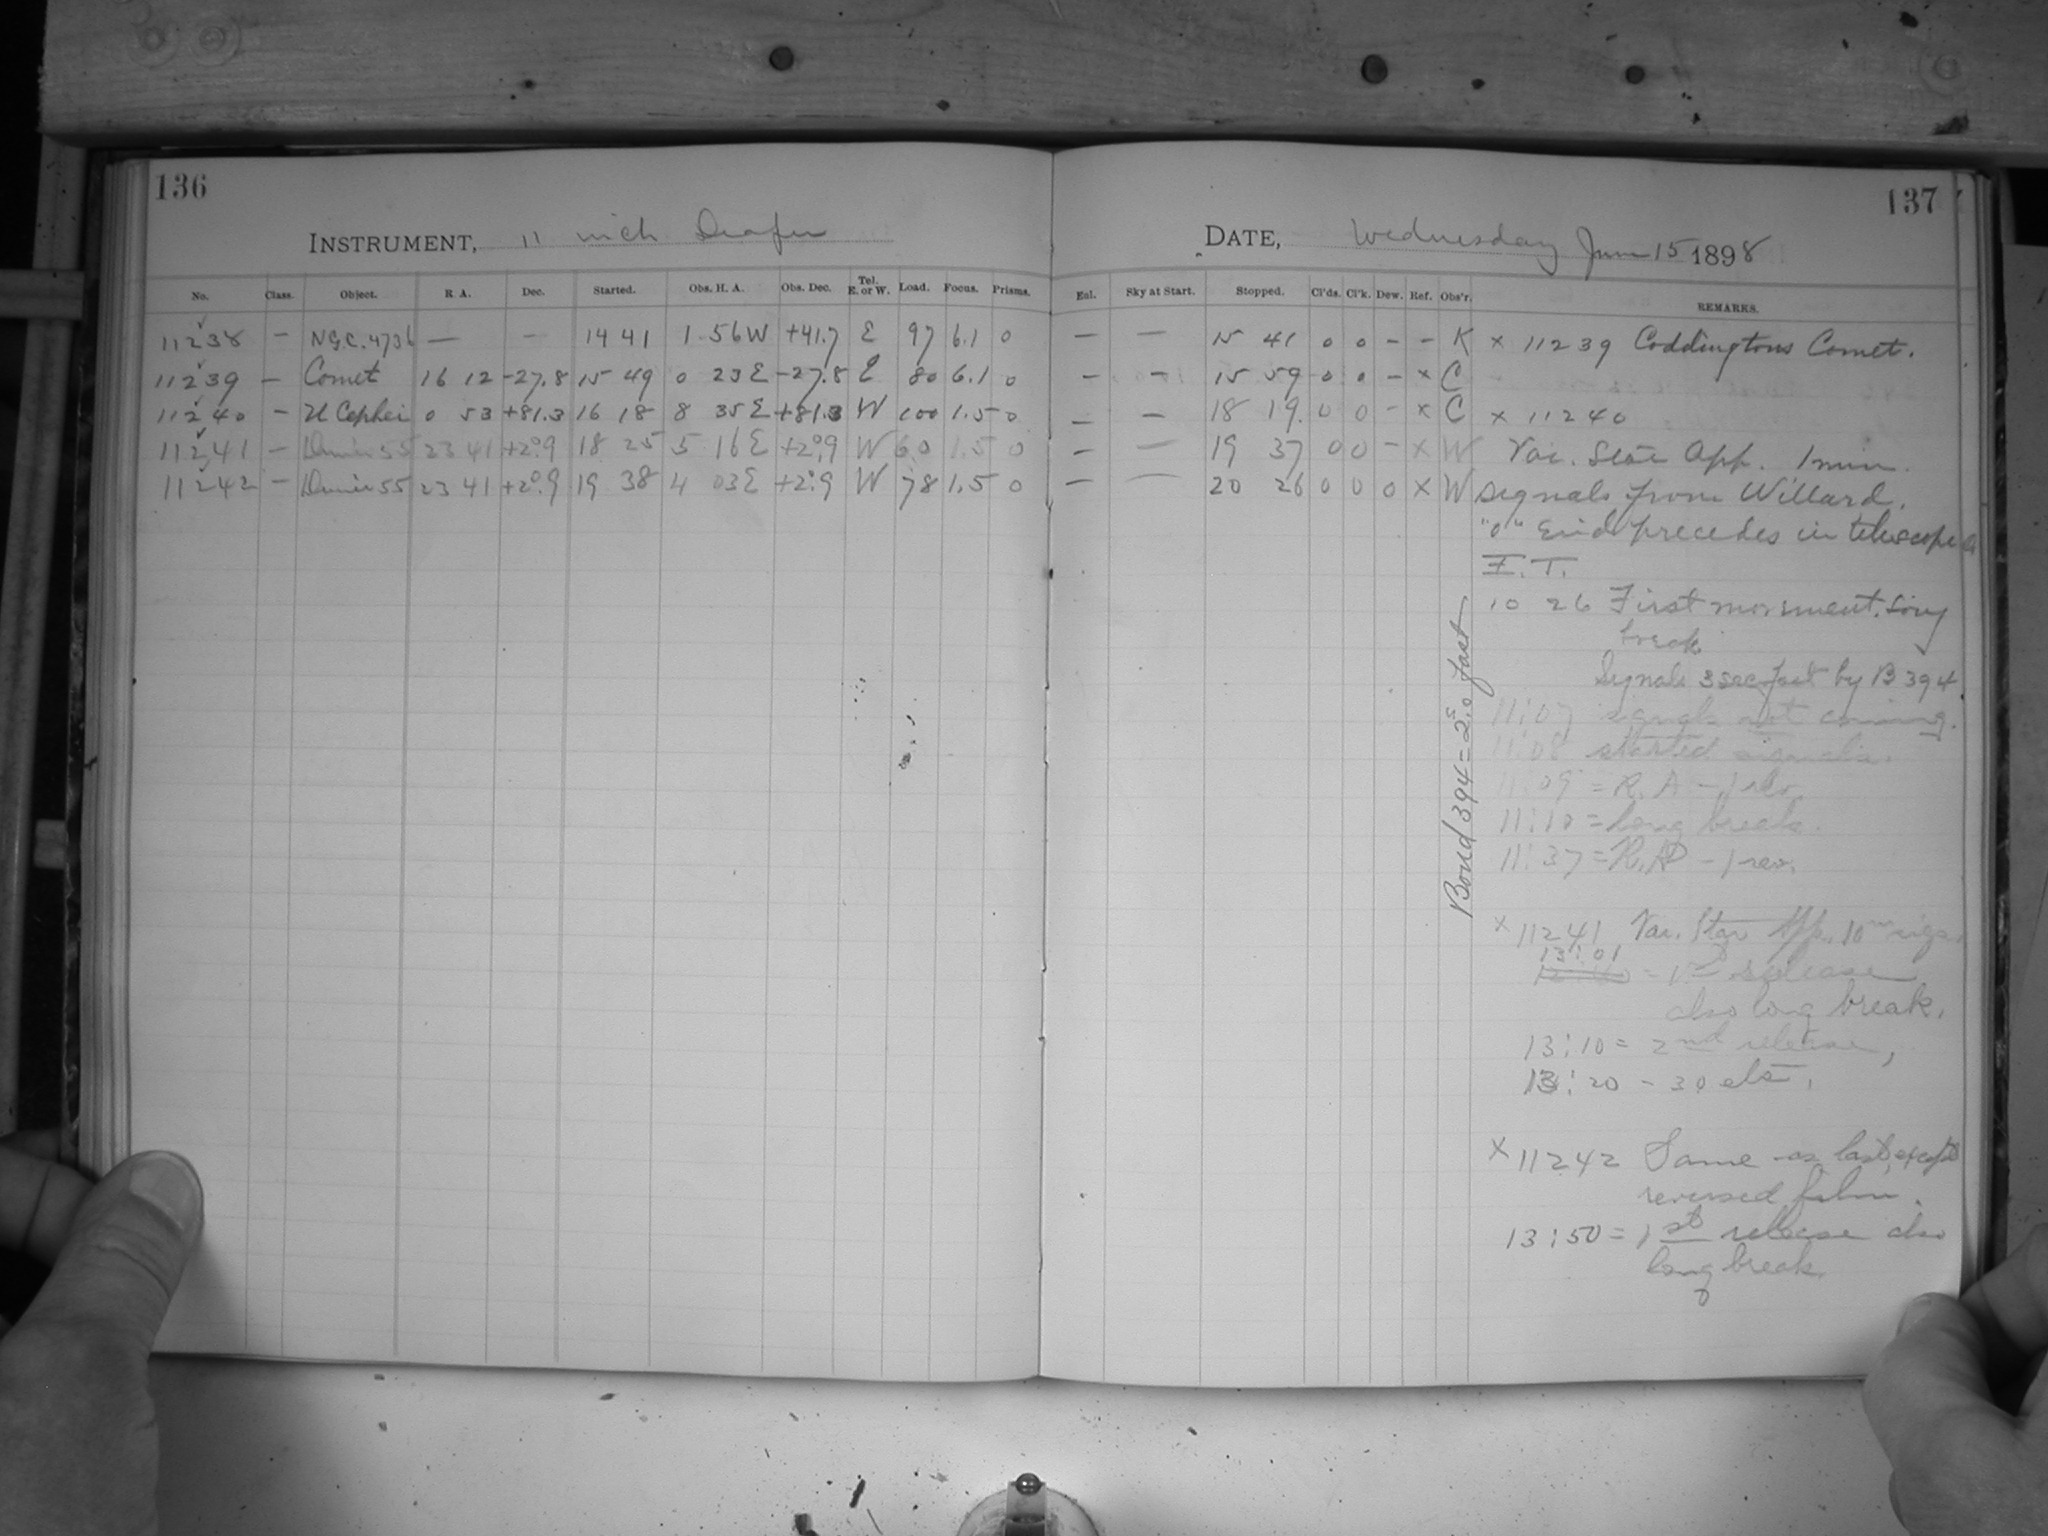 136
INSTRUMENT, 11 inch Draper
No. Class. Object. R. A. Dec. Started. Obs. H. A. Obs. Dec. Tel. E. or W. Load. Focus. Prisms.
11238 — N.G.C. 4736 — — 14 41 1 56 W +41.7 E 97 6.1 0
11239 — Comet 16 12 -27.8 15 49 0 23 E -27.8 E 80 6.1 0
11240 — U Cephei 0 53 +81.3 16 18 8 35 E +81.3 W 100 1.5 0
11241 — 55 23 41 +2°.9 18 25 5 16 E +2°.9 W 60 1.5 0
11242 — 55 23 41 +2°.9 19 38 4 03 E +2°.9 W 78 1.5 0
137
DATE, Wednesday June 15 1898
Enl. Sky at Start. Stopped. Cl'ds. Cl'k. Dew. Ref. Obs'r. REMARKS.
— — 15 41 0 0 - - K x 11239 Coddingtons Comet.
— — 15 59 0 0 - x C
— — 18 19 0 0 - x C x 11240
— — 19 37 0 0 - x W Var. Star App. 1 min.
— — 20 26 0 0 0 x W signals from Willard.
"0" End precedes in telescope
E. T.
10 26 First movement. Long
break
Signals 3 sec fast by B 394
11:07 signals not coming.
11:08 started signals.
11:09 = R. A - 1 rev.
11:10 = Long break.
11:37 = R. A - 1 rev.
Bond 394 = 2.0s fast
x 11241 Var. Star App. 10m
13:01
= 1st release
also long break.
13:10 = 2nd release,
13:20 - 30 etc.
x 11242 Same as last, except
reversed film.
13:50 = 1st release also
long break.